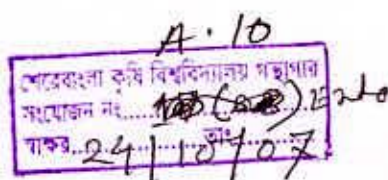 A. 10
শেরেবাংলা কৃষি বিশ্ববিদ্যালয় গন্থাগার
সংযোজন নং..........Ento
স্বাক্ষর..........তাং..........
24/10/07